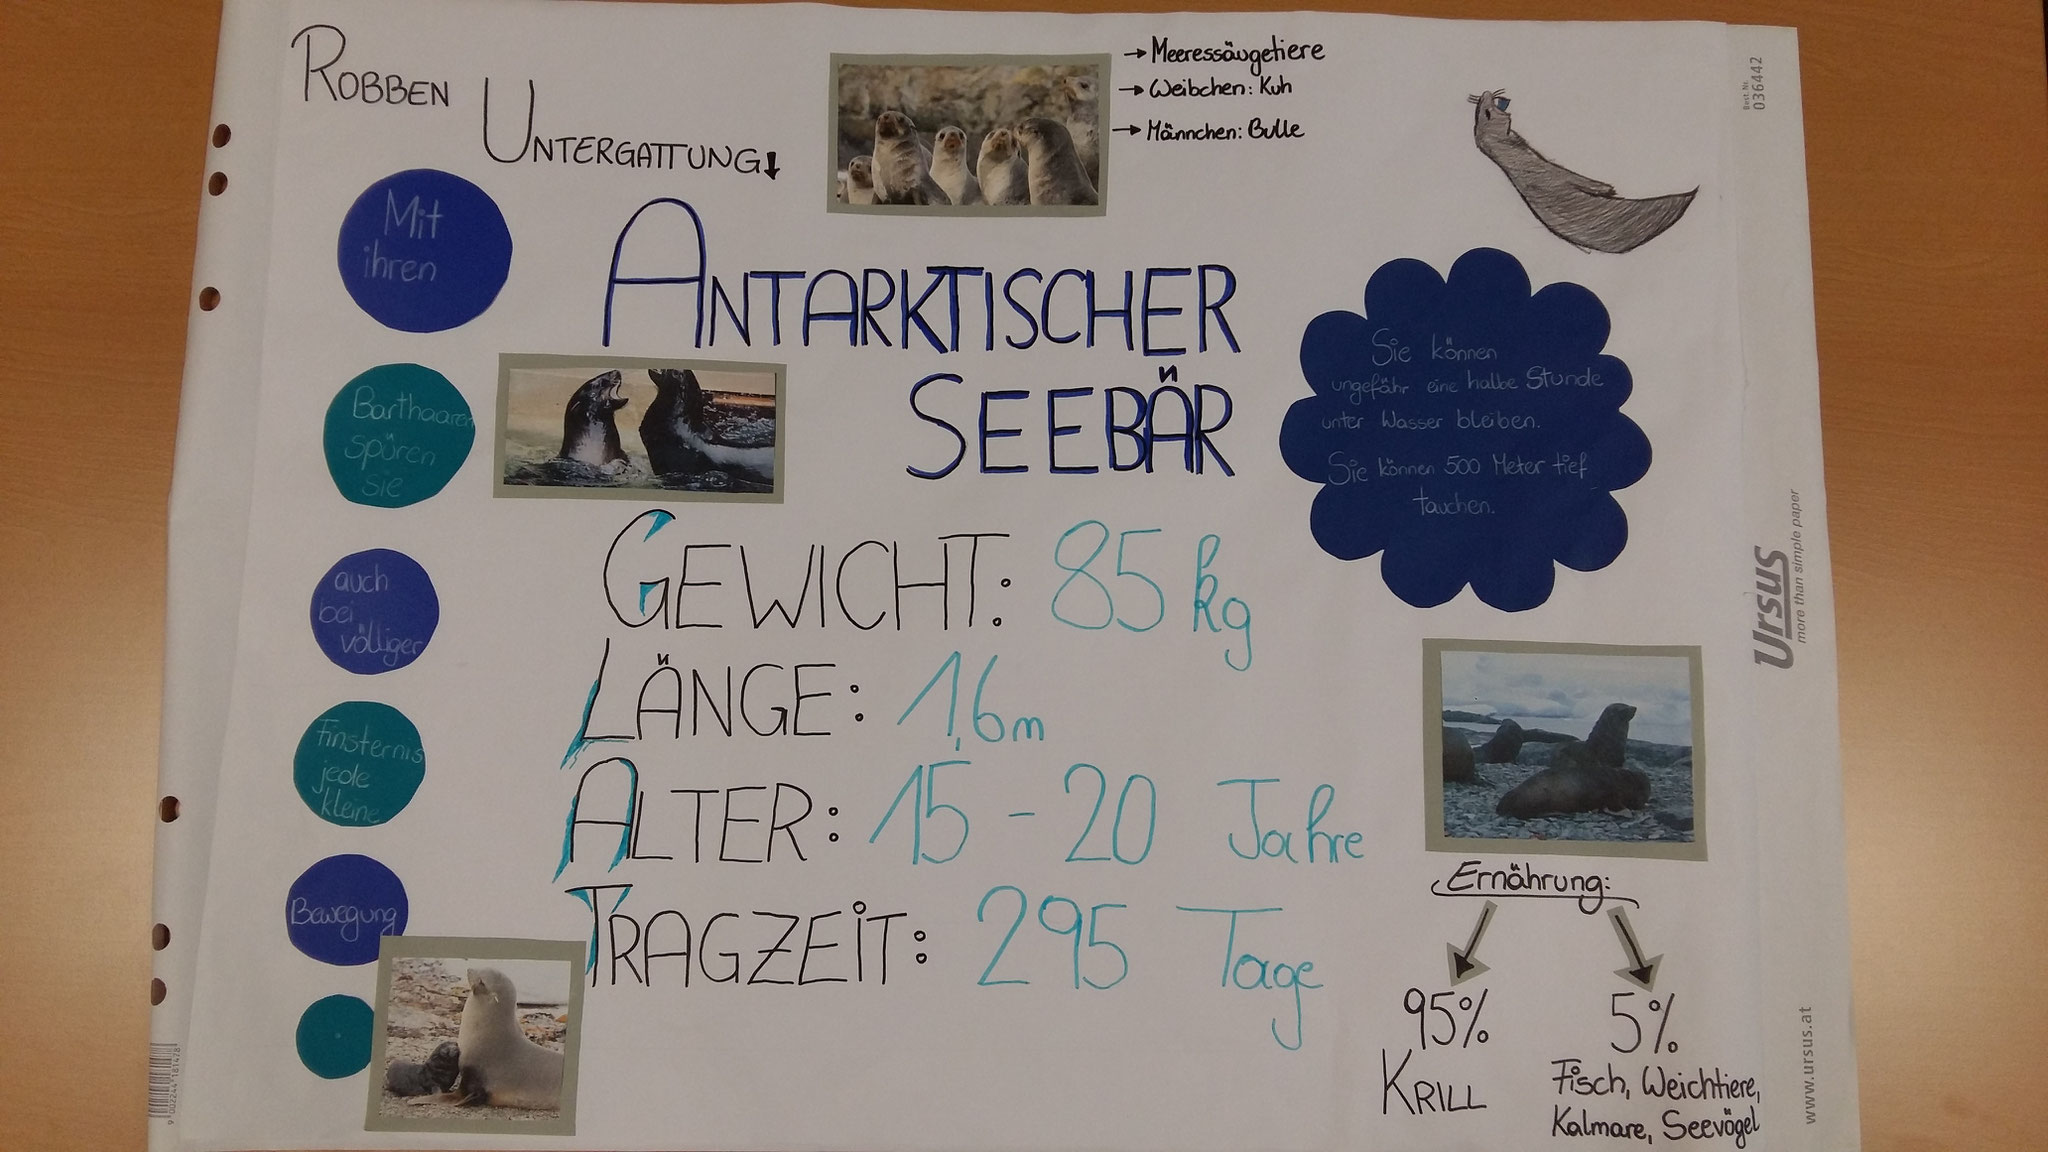 ROBBEN
UNTERGATTUNG↓
→ Meeressäugetiere
→ Weibchen: Kuh
→ Männchen: Bulle
ANTARKTISCHER
SEEBÄR
Mit
ihren
Barthaaren
spüren
sie
auch
bei
völliger
Finsternis
jede
kleine
Bewegung
.
Sie können
ungefähr eine halbe Stunde
unter Wasser bleiben.
Sie können 500 Meter tief
tauchen.
GEWICHT: 85 kg
LÄNGE: 1,6 m
ALTER: 15 - 20 Jahre
TRAGZEIT: 295 Tage
Ernährung:
95%
KRILL
5%
Fisch, Weichtiere,
Kalmare, Seevögel
Best. Nr.
036442
Ursus
more than simple paper
www.ursus.at
9 002244 181478